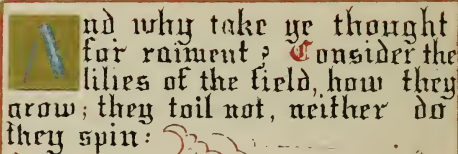 And why take ye thought
for raiment? Consider the
lilies of the field, how they
grow; they toil not, neither do
they spin: